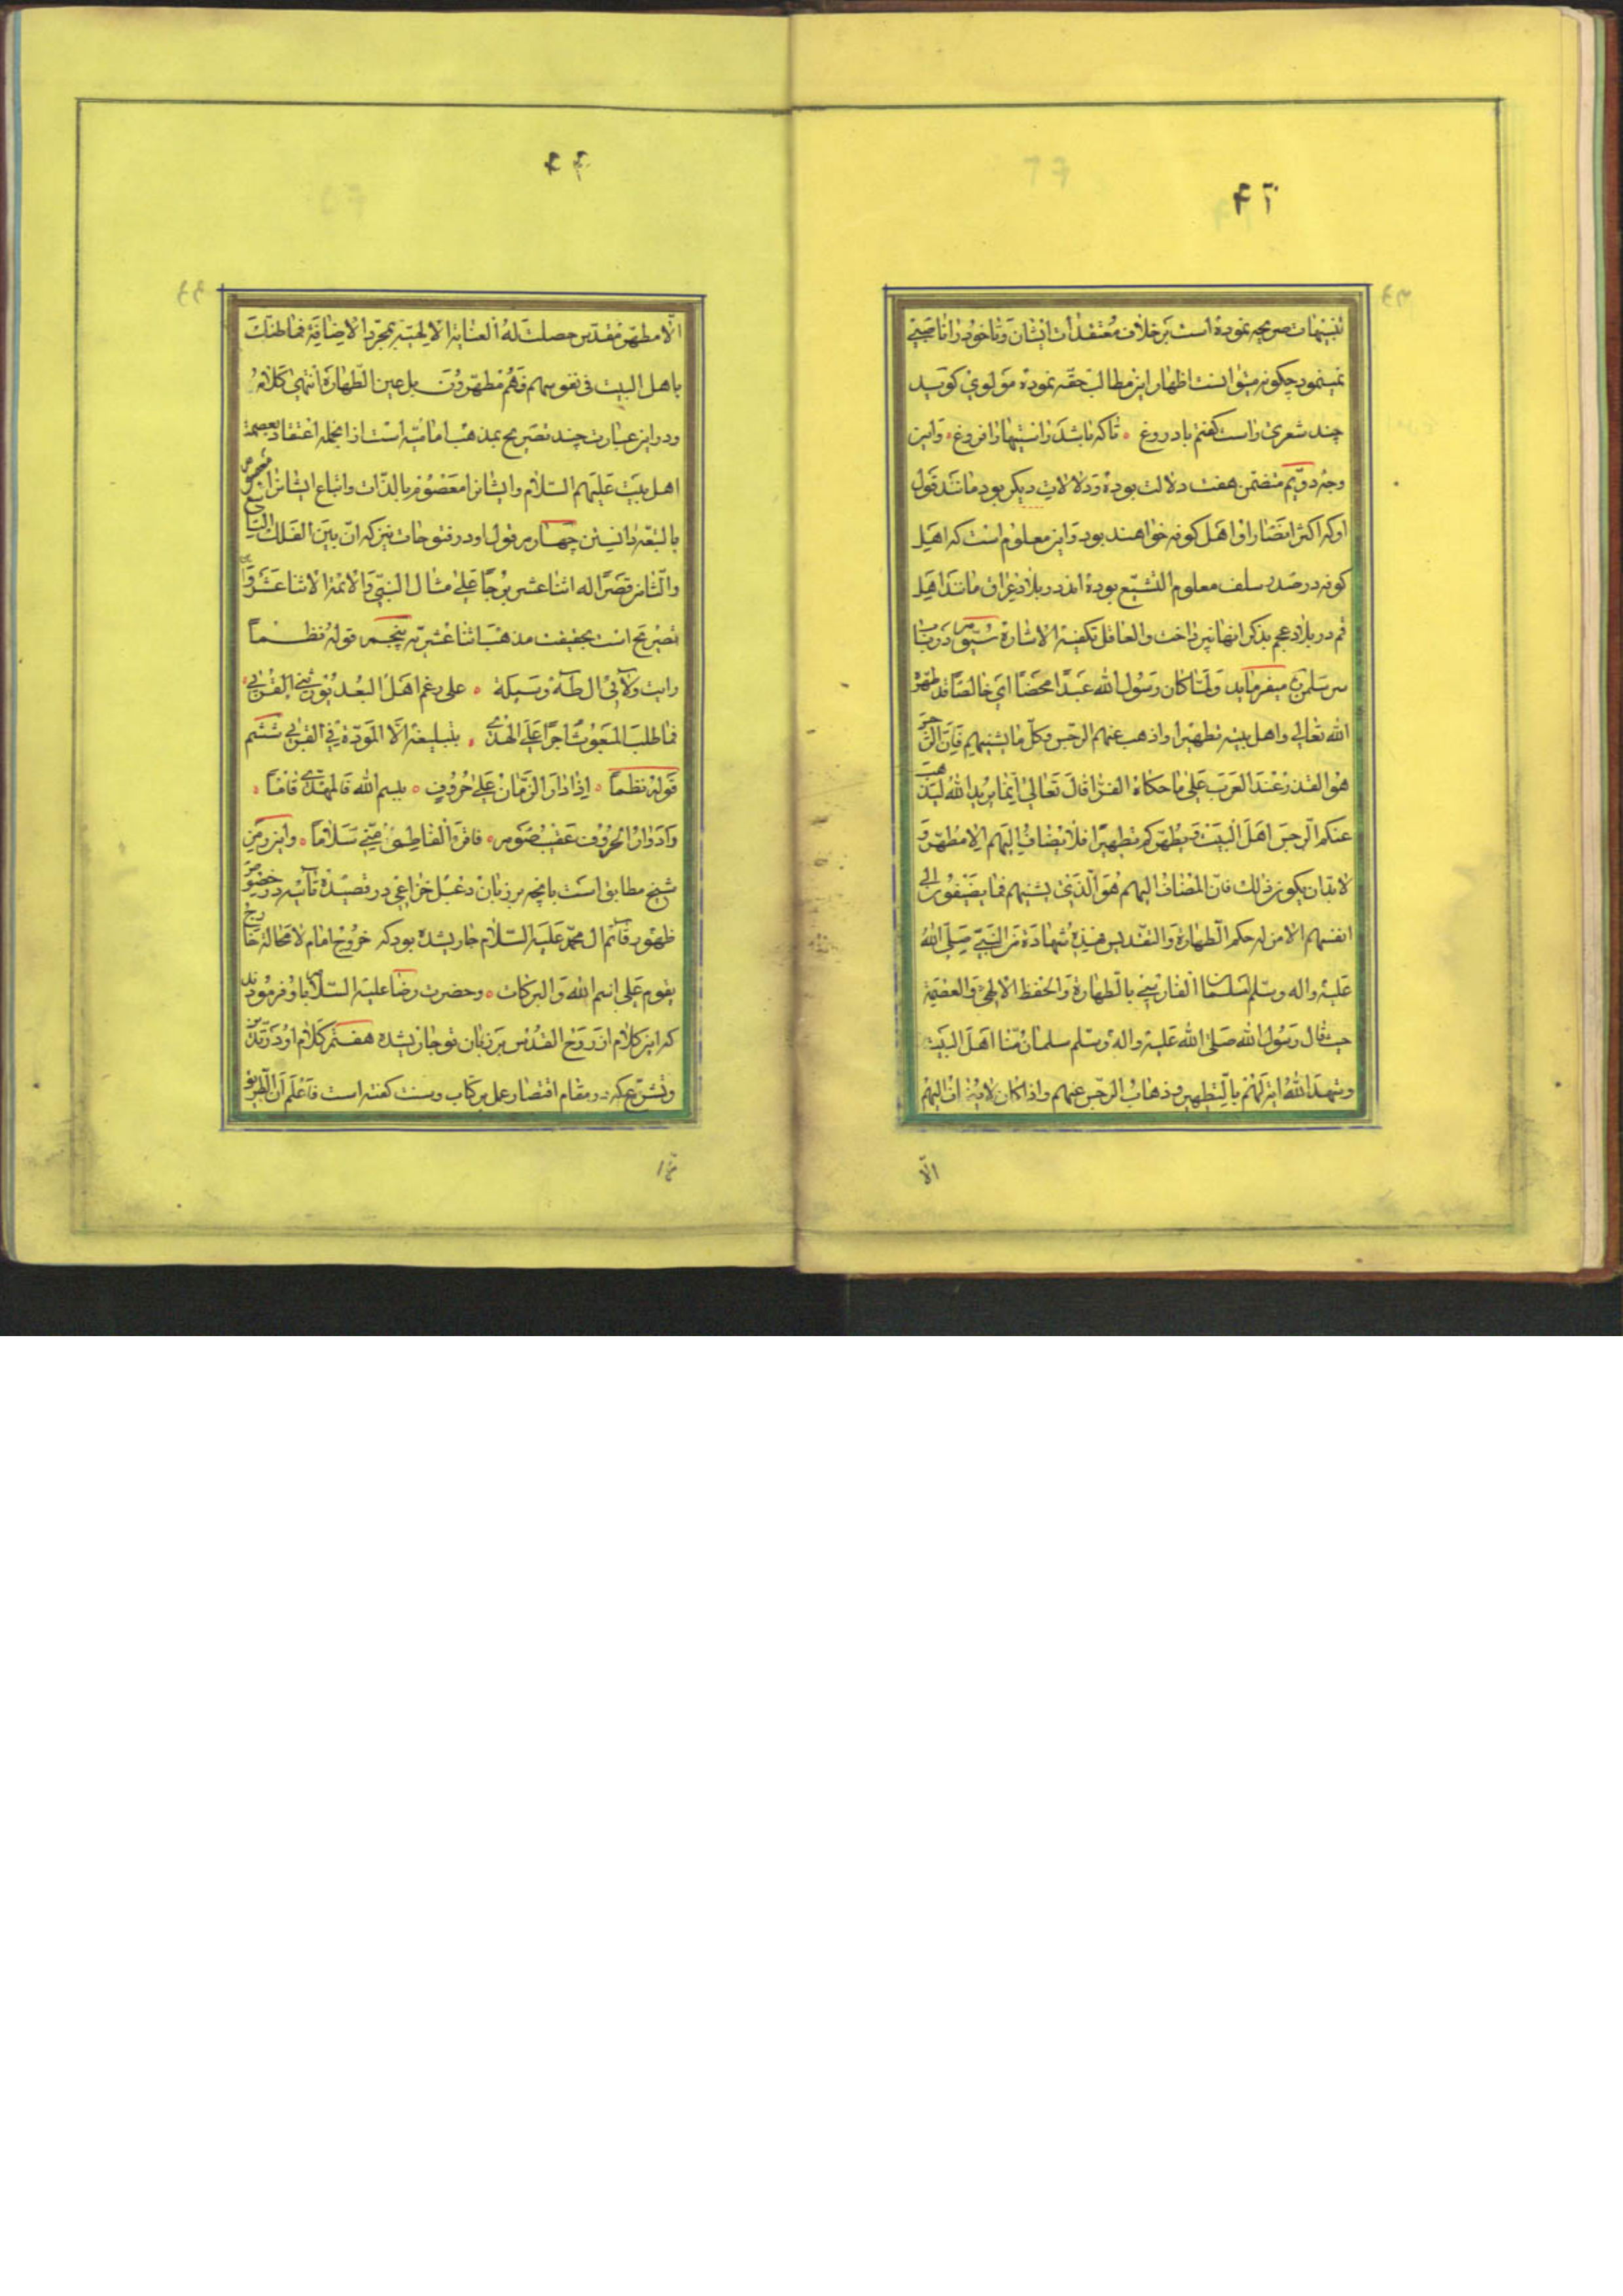 ۴۲
تنبیهات صریحه نموده است بر خلاف معتقدات ایشان و تا خود را ناصبی
نمینمود چگونه میتوانست اظهار این مطالب حقه نموده مولوی کوید
چند شعری راست کفتم با دروغ تا که باشد راستیها را فروغ واین
وجه دویم متضمن هفت دلالت بوده و دلالات دیکر بود مانند قول
او که اکثر انصار او اهل کوفه خواهند بود و این معلوم است که اهل
کوفه در صدر سلف معلوم التشیع بوده اند در بلاد عراق مانند اهل
قم در بلاد عجم بذکر انها نپرداخت والعاقل تکفیه الاشارة سیّوم در باب
سر سلمن میفرماید ولما کان رسول الله عبدا محضا ای خالصا قد طهره
الله تعالی واهل بیته تطهیرا واذهب عنهم الرجس وکل ما یشینهم فان الرجس
هو القذر عند العرب علی ما حکاه الفرا قال تعالی انما یرید الله لیذهب
عنکم الرجس اهل البیت ویطهرکم تطهیرا فلا یضاف الیهم الا مطهر و
لابد ان یکون ذلک فان المضاف الیهم هو الذی یشبههم فما یضیفون الی
انفسهم الا من له حکم الطهارة والتقدیس فهذه شهادة من النبی صلی الله
علیه واله وسلم لسلمان الفارسی بالطهارة والحفظ الالهی والعصمة
حیث قال رسول الله صلی الله علیه واله وسلم سلمان منا اهل البیت
وشهد الله لهم بالتطهیر وذهاب الرجس عنهم واذا کان لا یضاف الیهم
الّا
الّا مطهر مقدس حصلت له العنایة الالهیة بمجرد الاضافة فما ظنک
باهل البیت فی نفوسهم فهم مطهرون بل عین الطهارة انتهی کلامه
ودر این عبارت چند تصریح بمذهب امامیه است از انجمله اعتقاد بعصمة
اهل بیت علیهم السلام وایشانرا معصوم بالذات واتباع ایشانرا معصوم
بالتبع دانستن چهارم قول او در فتوحات نیز که ان بین الفلک التاسع
والثامن قصرا له اثنا عشر برجا علی مثال النبی والائمة الاثنا عشر واین
تصریح است بحقیقت مذهب اثنا عشریه پنجم قوله نظما
رایت ولائی ال طه وسیلة علی رغم اهل البعد یورثنی القربی
فما طلب المبعوث اجرا علی الهدی بتبلیغه الا المودة فی القربی ششم
قوله نظما اذا دار الزمان علی حروف ببسم الله فالمهدی قاما
وادوار الحروف عقیب صوم فاقر الفاطمی منی سلاما واین رمز
شیخ مطابق است بانچه بر زبان دعبل خزاعی در قصیده تائیه در حضور
ظهور قائم ال محمد علیه السلام جاری شده بود که خروج امام لا محالة خارج
یقوم علی اسم الله والبرکات وحضرت رضا علیه السلام باو فرمودند
که این کلام از روح القدس بر زبان تو جاری شده هفتم کلام او در تدین
وتشرع که در مقام اقتصار عمل بر کتاب وسنت کفته است فاعلم ان الطریق